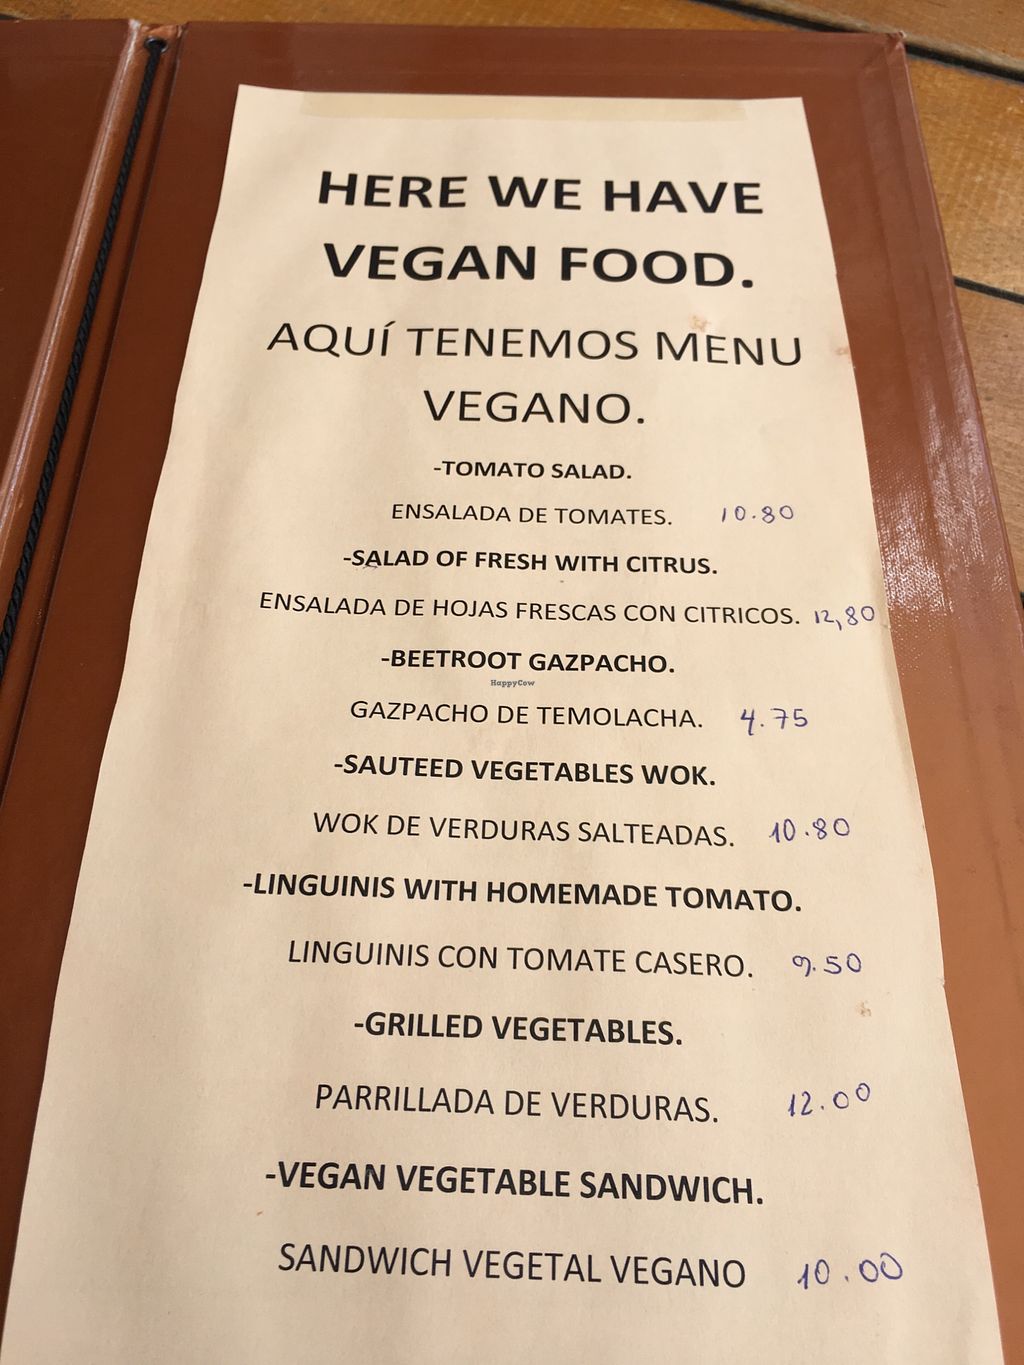 HERE WE HAVE
VEGAN FOOD.
AQUÍ TENEMOS MENU
VEGANO.
-TOMATO SALAD.
ENSALADA DE TOMATES. 10.80
-SALAD OF FRESH WITH CITRUS.
ENSALADA DE HOJAS FRESCAS CON CITRICOS. 12,80
-BEETROOT GAZPACHO.
HappyCow
GAZPACHO DE TEMOLACHA. 4.75
-SAUTEED VEGETABLES WOK.
WOK DE VERDURAS SALTEADAS. 10.80
-LINGUINIS WITH HOMEMADE TOMATO.
LINGUINIS CON TOMATE CASERO. 9.50
-GRILLED VEGETABLES.
PARRILLADA DE VERDURAS. 12.00
-VEGAN VEGETABLE SANDWICH.
SANDWICH VEGETAL VEGANO 10.00